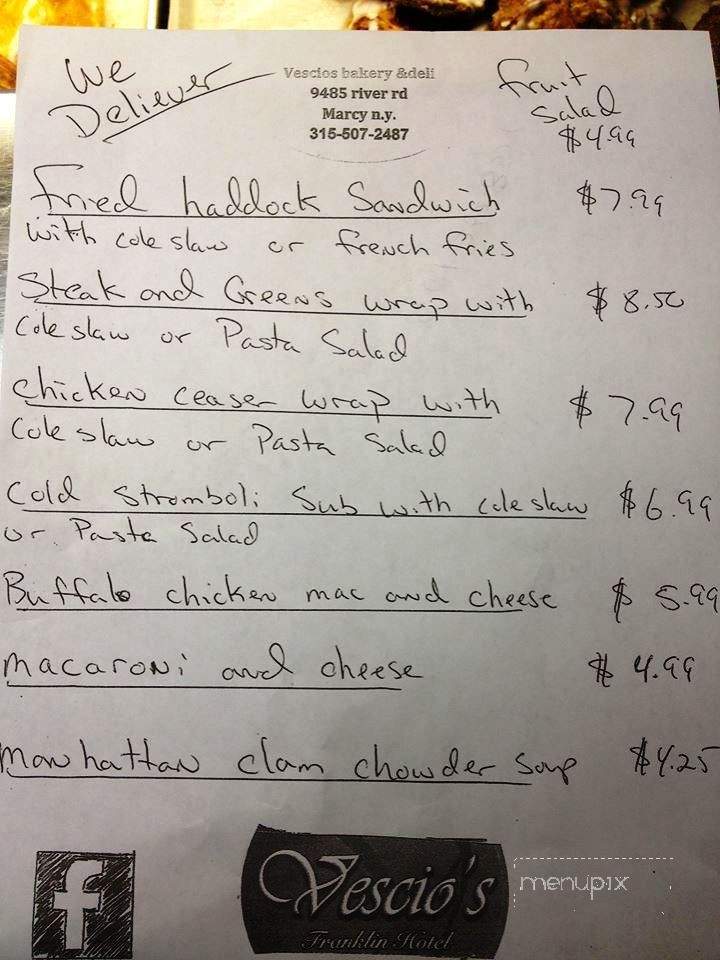 We
Deliever
Vescios bakery &deli
9485 river rd
Marcy n.y.
315-507-2487
fruit
salad
$4.99
Fried haddock Sandwich $7.99
with coleslaw or french fries
Steak and Greens wrap with $8.50
Coleslaw or Pasta Salad
Chicken ceaser wrap with $7.99
Coleslaw or Pasta Salad
Cold Stromboli Sub with coleslaw $6.99
or Pasta Salad
Buffalo chicken mac and cheese $5.99
macaroni and cheese $4.99
manhattan clam chowder soup $4.25
f
Vescio's
Franklin Hotel
menupix